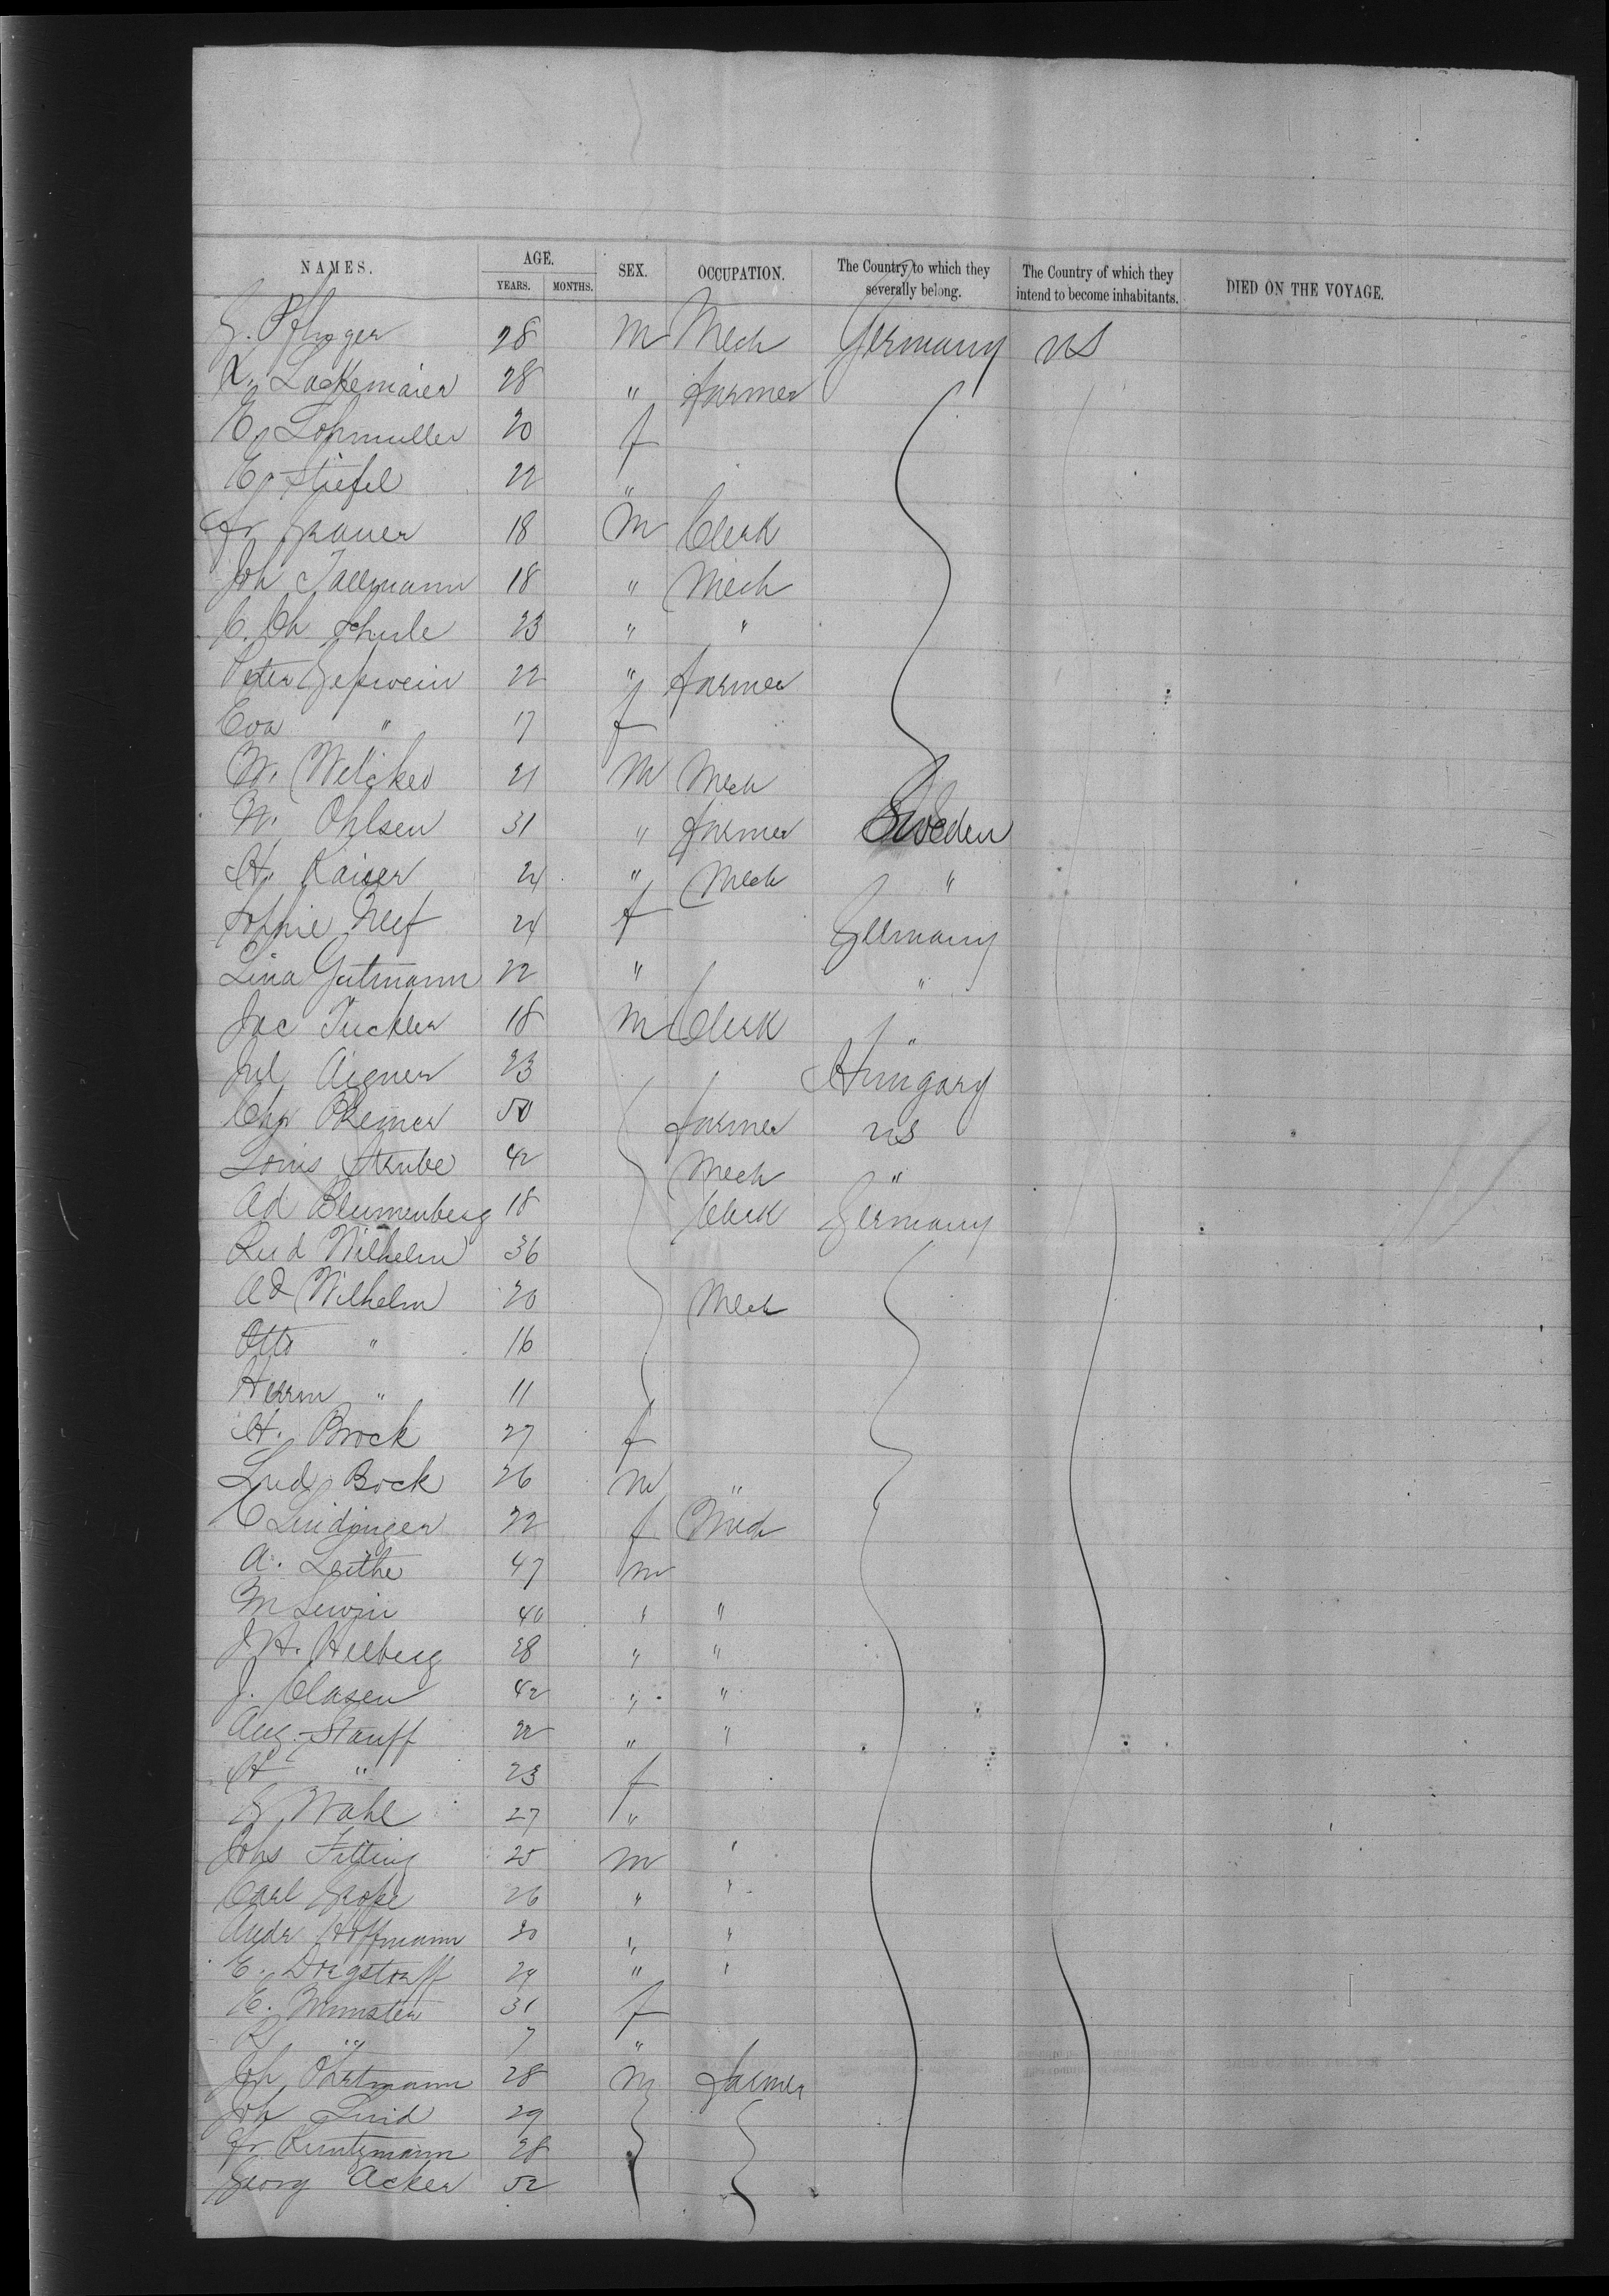 NAMES. AGE. SEX. OCCUPATION. The Country to which they severally belong. The Country of which they intend to become inhabitants. DIED ON THE VOYAGE.
YEARS. MONTHS.
28 m Mech Germany US
Lackemaier 28 " farmer
E. Lohmuller 20 f
E. Stiefel 22 "
Fr Grauer 18 m Clerk
Joh Tallmann 18 " Mech
C. Ch Schule 23 " "
Peter 22 " farmer
Eva " 17 f
W. 21 m Mech
W. Ohlsen 31 " farmer Sweden
H. Kaiser 24 " Mech "
Sophie Neef 24 f Germany
Lina Gutmann 22 " "
Jac Tuckler 18 m Clerk "
Jul Aigner 23 Hungary
Chr 50 farmer US
Louis Strube 42 Mech "
Ad Blumenberg 18 Clerk Germany
Rud Wilhelm 36
Ad Wilhelm 20 Mech
Otto " 16
Herm " 11
H. Brock 27 f
Lud Bock 26 m "
C Lindinger 22 f Mech
A. Leithe 47 m
M Lewin 40 " "
J. H. 28 " "
J. Clasen 42 " "
Aug. Stauff 22 " "
H " 23 f
Wahl 27 "
Johs Fitting 25 m "
Carl 26 " "
Andr Hoffmann 20 " "
E. 29 " "
E. Munster 31 f
" 7 "
Joh Ohrtmann 28 m farmer
Joh Lind 29
Fr Kuntzmann 28
Georg Acker 52